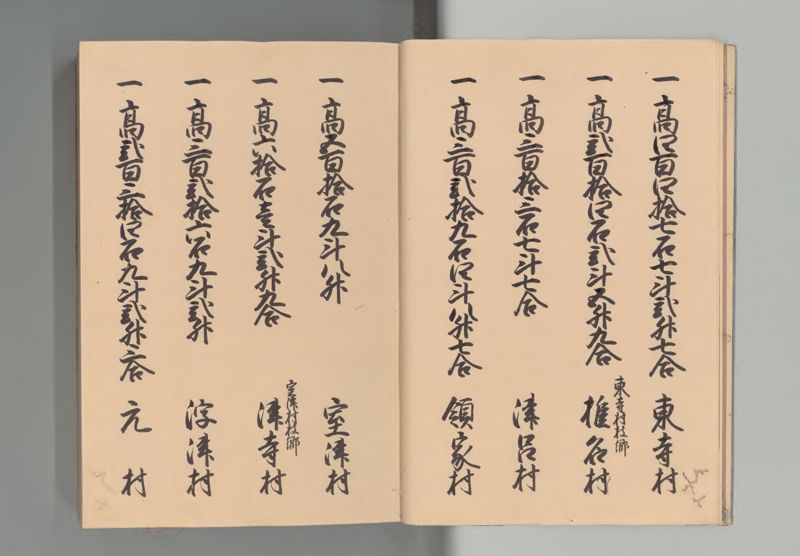 一 高四百四拾七石七斗弐升七合 東寺村
一 高弐百拾四石弐斗五升九合 東寺村枝郷 椎名村
一 高三百拾三石七斗七合 津呂村
一 高三百弐拾九石四斗八升七合 領家村
一 高五百拾石九斗八升 室津村
一 高六拾石壱斗弐升九合 室津村枝郷 津寺村
一 高三百弐拾六石九斗弐升 浮津村
一 高弐百三拾四石九斗弐升三合 元村